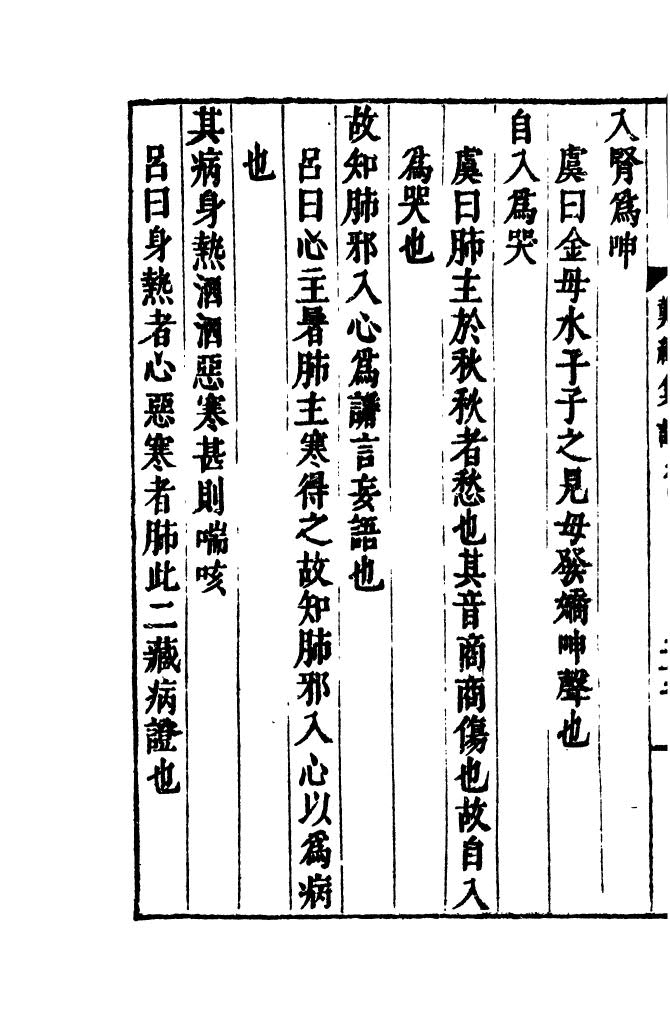 入腎爲呻
虞曰金母水子子之見母發嬌呻聲也
自入爲哭
虞曰肺主於秋秋者愁也其音商商傷也故自入
爲哭也
故知肺邪入心爲譫言妄語也
呂曰心主暑肺主寒得之故知肺邪入心以爲病
也
其病身熱洒洒惡寒甚則喘咳
呂曰身熱者心惡寒者肺此二藏病證也